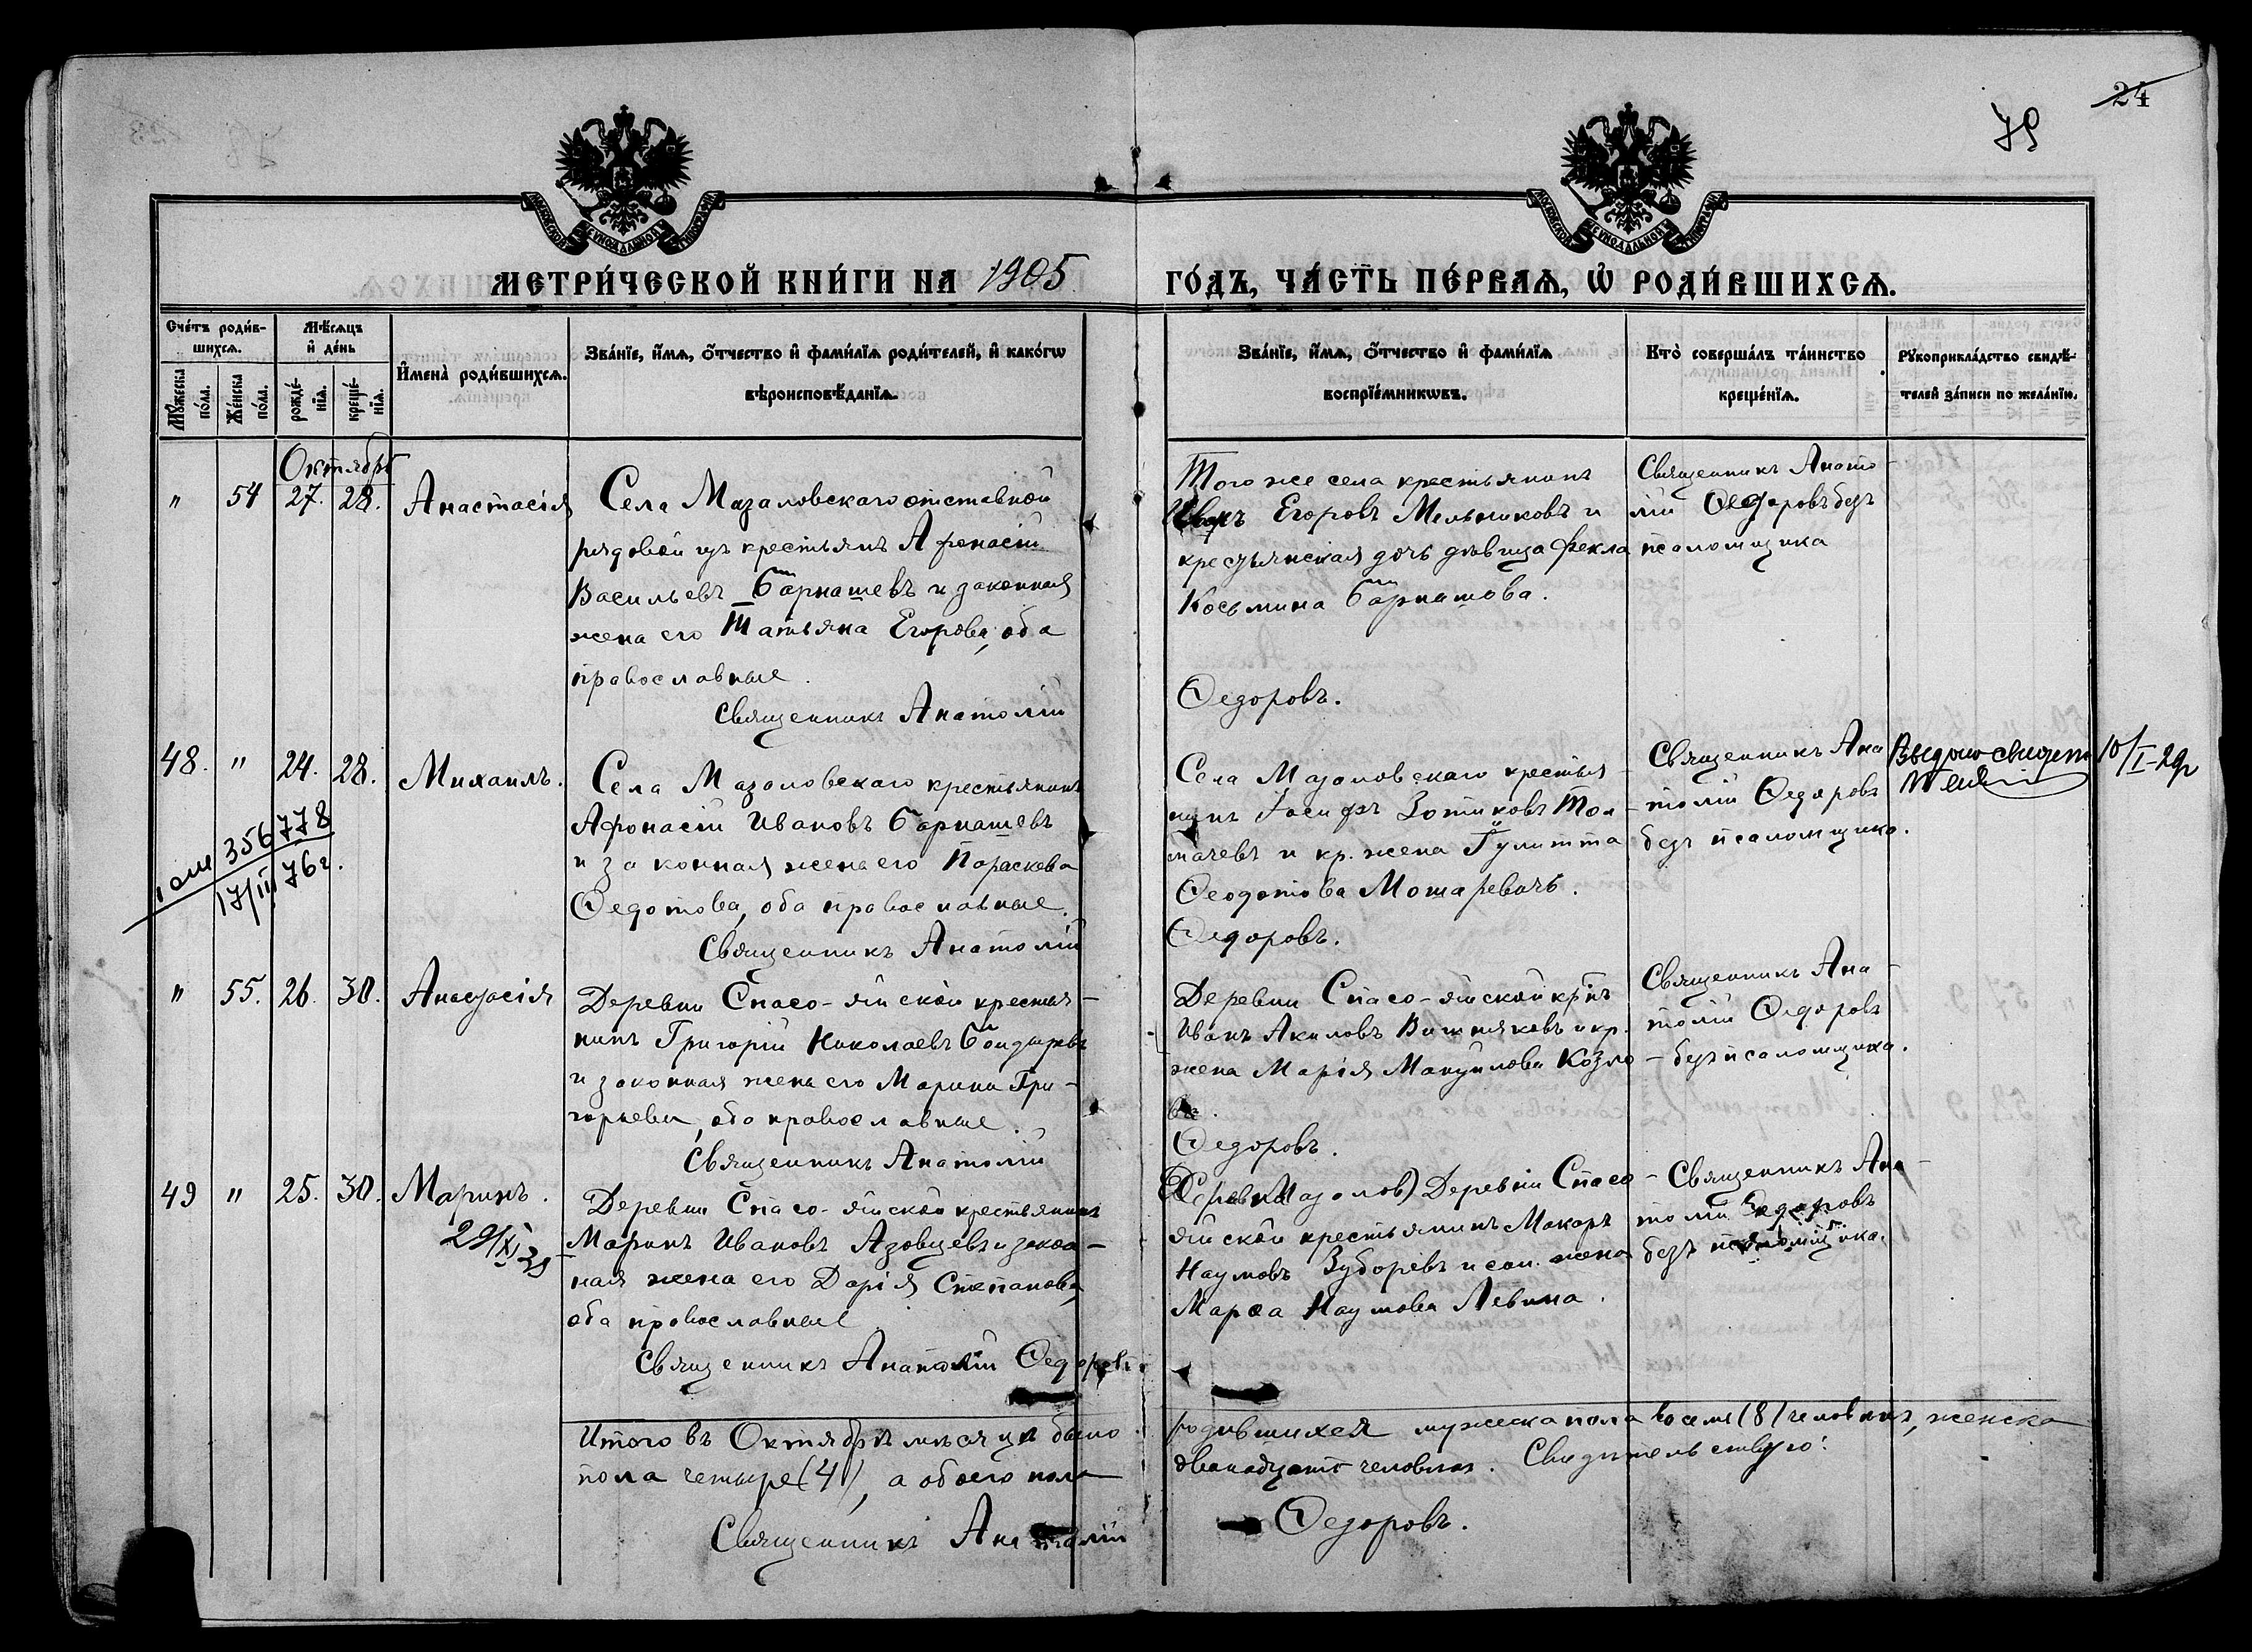 24
79
МОСКОВСКОЙ СѴНОДАЛЬНОЙ ТИПОГРАФІИ
МОСКОВСКОЙ СѴНОДАЛЬНОЙ ТИПОГРАФІИ
МЕТРИ́ЧЕСКОЙ КНИ́ГИ НА 1905 ГО́ДЪ, ЧА́СТЬ ПЕ́РВАѦ, Ѡ҆ РОДИ́ВШИХСѦ.
Сче́тъ роди́в-
шихсѧ.
Мꙋ́жеска
по́ла.
Же́нска
по́ла.
Мѣ́сѧцъ
и҆ де́нь
рожде́-
нїѧ.
креще́-
нїѧ.
И҆мена̀ роди́вшихсѧ.
Зва́нїе, и҆́мѧ, ѻ҆́тчество и҆ фами́лїѧ роди́телей, и҆ како́гѡ
вѣроисповѣ́данїѧ.
Зва́нїе, и҆́мѧ, ѻ҆́тчество и҆ фами́лїѧ
воспрїе́мникѡвъ.
Кто̀ соверша́лъ та́инство
креще́нїѧ.
Рꙋкоприкла́дство свидѣ́-
телей за́писи по жела́нїю.
Октябрь
" 54 27. 28. Анастасія
Села Мазаловскаго отставной
рядовой изъ крестьянъ Афонасій
Васильевъ Барнашевъ и законная
жена его Татьяна Егорова, оба
православные.
Священникъ Анатолій
Того же села крестьянинъ
Егоровъ Мельниковъ и
крестьянская дочь дѣвица Фекла
Косьмина Барнашова.
Ѳедоровъ.
Священникъ Анато-
лій Ѳедоровъ безъ
псаломщика
48. " 24. 28. Михаилъ.
356778
17/III 76г.
Села Мазоловскаго крестьянинъ
Афонасій Ивановъ Барнашевъ
и законная жена его Параскева
Ѳедотова, оба православные.
Священникъ Анатолій
Села Мазоловскаго крестья-
нинъ Іосифъ Зотиковъ Тол-
мачевъ и кр. жена Іулитта
Ѳеодотова Мошаревичъ.
Ѳедоровъ.
Священникъ Ана-
толій Ѳедоровъ
безъ псаломщика.
Выдано свидет. 10/I-29г
" 55. 26. 30. Анастасія
Деревни Спасо-яйской крестья-
нинъ Григорій Николаевъ Бондыревъ
и законная жена его Марина Гри-
горьева, оба православные.
Священникъ Анатолій
Деревни Спасо-яйской кр-нъ
Иванъ Акиловъ Вишняковъ и кр.
жена Марія Мануилова Козло-
ва.
Ѳедоровъ.
Священникъ Ана-
толій Ѳедоровъ
безъ псаломщика.
49 " 25. 30. Маринъ.
29/XI 39
Деревни Спасо-яйской крестьянинъ
Маринъ Ивановъ Азовцевъ и закон-
ная жена его Дарія Степанова,
оба православные
Священникъ Анатолій Ѳедоровъ.
Деревни Спасо-
яйской крестьянинъ Макаръ
Наумовъ Зубаревъ и сол. жена
Марѳа Наумова Левина.
Священникъ Ана-
толій Ѳедоровъ
безъ псаломщика.
Итого въ Октябрѣ мѣсяцѣ было родившихся мужеска пола восемь (8) человѣкъ, женска
пола четыре (4), а обоего пола двенадцать человѣкъ. Свидѣтельствую:
Священникъ Анатолій Ѳедоровъ.